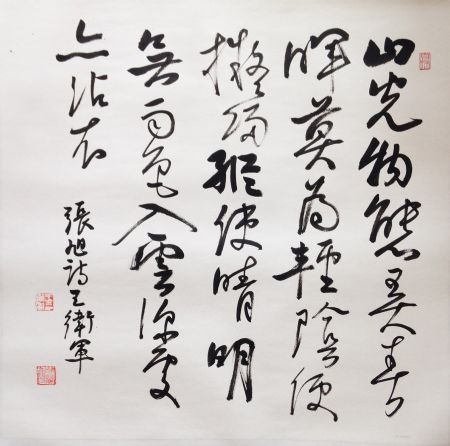 山光物態弄春
暉莫為輕陰便
擬歸縱使晴明
無雨色入雲深處
亦沾衣
張旭詩王衛軍